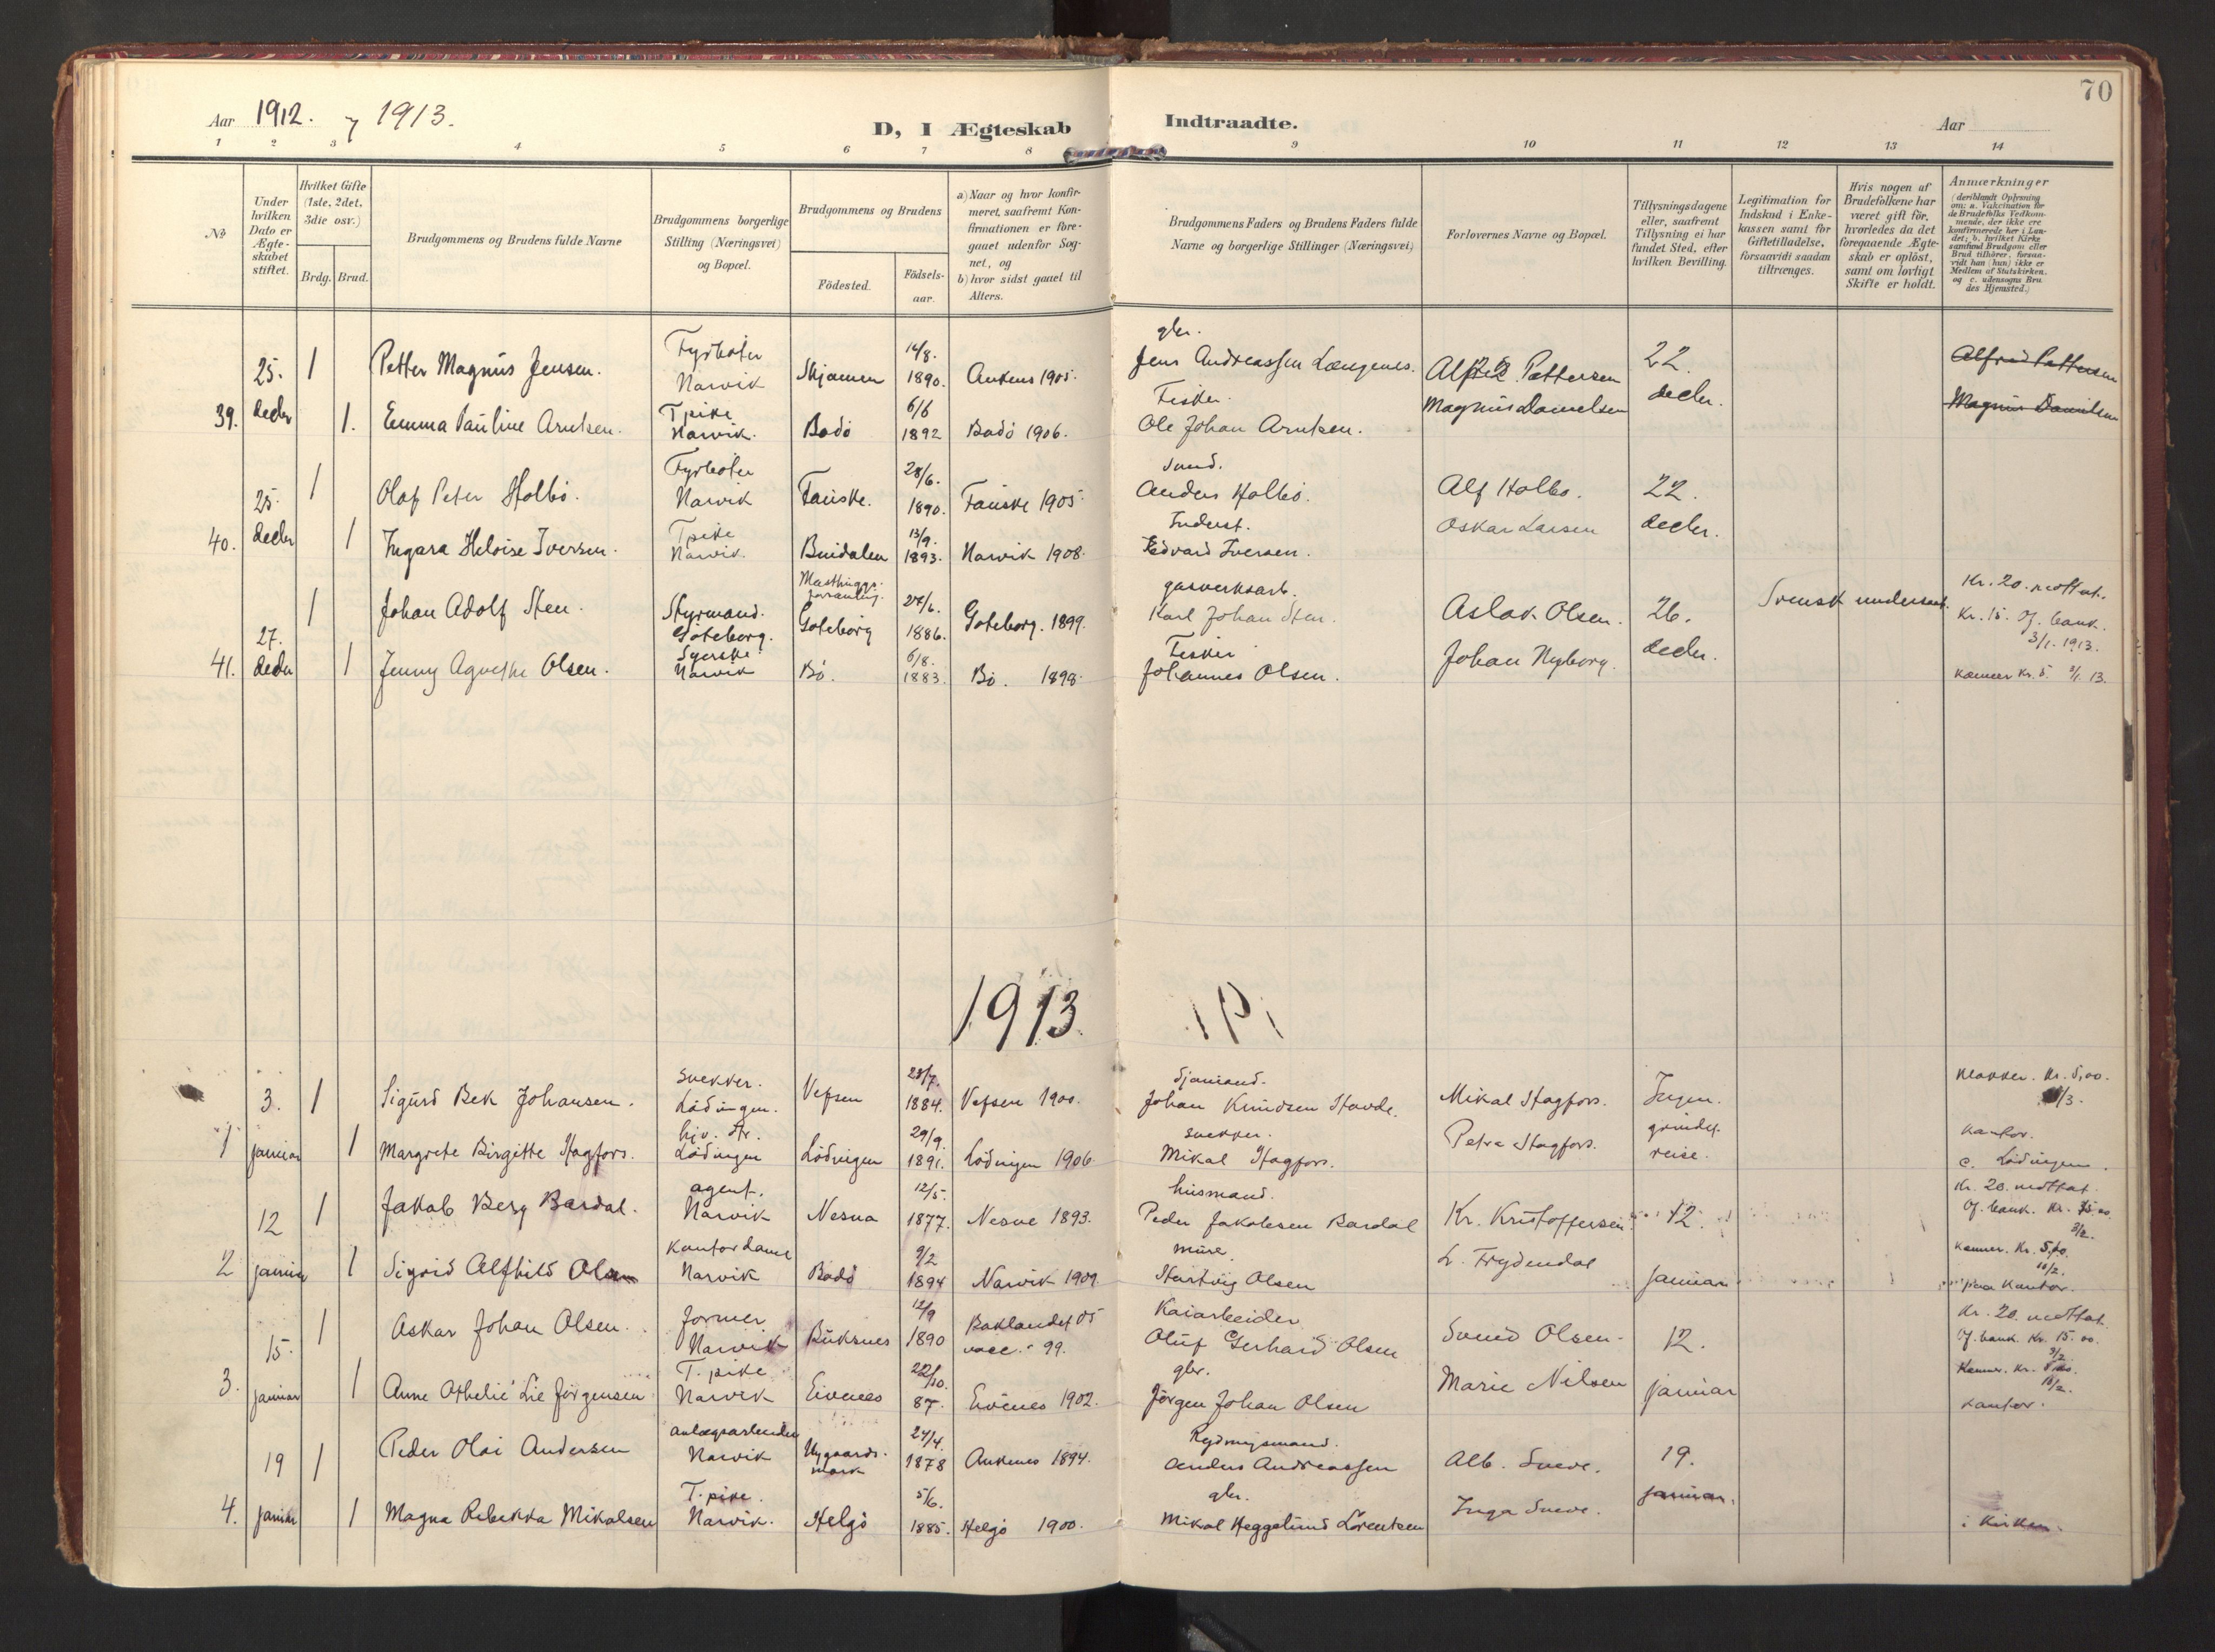 70
Aar 1912. 1913.
D, I Ægteskab Indtraadte.
Aar
1 2 3 4 5 6 7 8 9 10 11 12 13 14
No
Under hvilken Dato er Ægteskabet stiftet.
Hvilket Gifte (1ste, 2det, 3die osv.)
Brdg. Brud.
Brudgommens og Brudens fulde Navne
Brudgommens borgerlige Stilling (Næringsvei) og Bopæl.
Brudgommens og Brudens
Födested.
Födselsaar.
a) Naar og hvor konfirmeret, saafremt Konfirmationen er foregaaet udenfor Sognet, og
b) hvor sidst gaaet til Alters.
Brudgommens Faders og Brudens Faders fulde Navne og borgerlige Stillinger (Næringsvei)
Forlovernes Navne og Bopæl.
Tillysningsdagene eller, saafremt Tillysning ei har fundet Sted, efter hvilken Bevilling.
Legitimation for Indskud i Enkekassen samt for Giftetilladelse, forsaavidt saadan tiltrænges.
Hvis nogen af Brudefolkene har været gift för, hvorledes da det foregaaende Ægteskab er oplöst, samt om lovligt Skifte er holdt.
Anmærkninger
(deriblandt Oplysning om: a. Vakcination for de Brudefolks Vedkommende, der ikke ere konfirmerede her i Landet; b. hvilket Kirkesamfund Brudgom eller Brud tilhörer, forsaavidt han (hun) ikke er Medlem af Statskirken. og c. udensogns Brudes Hjemsted.)
Fyrböter 14/8. gbr.
25. 1 Petter Magnus Jensen. Narvik Skjomen 1890. Ankenes 1905. Jens Andreassen Længenes. Alfred Pettersen 22. Alfred Pettersen
39. decbr 1. Emma Pauline Arntsen. T pike Narvik. Bodö 6/6 1892 Bodö 1906. Fisker. Ole Johan Arntsen. Magnus Danielsen decbr. Magnus Danielsen
Fyrböter 28/6.
25. 1 Olaf Peter Holbö. Narvik Fauske. 1890. Fauske 1905. Anders Holbö. Alf Holbö. 22.
40. decbr 1 Ingara Heloise Iversen. T pike Narvik. 13/9. 1893. Narvik 1908. Inderst. Edvard Iversen. Oskar Larsen decbr.
27. 1 Johan Adolf Sten. Styrmand. Göteborg. Göteborg 27/6. 1886. Göteborg. 1899. gasverksarb. Karl Johan Sten. Aslak Olsen. 26. Svensk undersaat. Kr. 20. mottat.
Kr. 15. Of. bank. 3/1. 1913.
41. decbr 1 Jenny Agnethe Olsen. Syerske. Narvik Bö. 6/8. 1883. Bö. 1898. Fisker Johannes Olsen. Johan Nyborg. decbr. Kæmner Kr. 5. 3/1. 13.
1913.
3. 1 Sigurd Bek Johansen. snekker. Lödingen. Vefsen 28/7. 1884. Vefsen 1900. Sjömand. Johan Knudsen Havde. Mikal Hagfors. Ingen. Klokker. Kr. 5,00.
1 januar 1 Margrete Birgitte Hagfors. Lödingen Lödingen 29/9. 1891. Lödingen 1906. snekker. Mikal Hagfors. Petra Hagfors. grundet reise. Kontor.
c. Lödingen.
12 1 Jakob Berg Bardal. agent. Narvik Nesna 12/5. 1877. Nesne 1893. husmand. Peder Jakobsen Bardal Kr. Kristoffersen 12. Kr. 20. mottat.
Of. bank. Kr. 15.00 3/2.
2 januar 1 Sigrid Alfhild Olsen Kontordame Narvik Bodö 9/2 1894 Narvik 1909. murer. Hartvig Olsen L. Frydendal januar Kæmner. Kr. 5,00. 10/2.
paa kontor.
15. 1 Oskar Johan Olsen. former. Narvik Buksnes 12/9 1890 Baklandet 05 vacc. 99. Kaiarbeider Oluf Gerhard Olsen Svend Olsen 12. Kr. 20. mottat
Of. bank. Kr. 15.00. 3/2
3. januar 1 Anne Othelie Lie Jörgensen T. pike Narvik Evenes 22/10. 87. Evenes 1902. gbr. Jörgen Johan Olsen Marie Nilsen januar Kæmner. Kr. 5,00. 10/2.
kontor.
19 1 Peder Olai Andersen anlægsarbeider Narvik Nygaardsmark 24/4. 1878 Ankenes 1894. Rydningsmand. Anders Andreassen Alb. Sneve. 19.
4. januar 1 Magna Rebekka Mikalsen T. pike. Narvik. Helgö 5/6. 1885. Helgö 1900. gbr. Mikal Heggelund Lorentsen Inga Sneve. januar. i kirken.